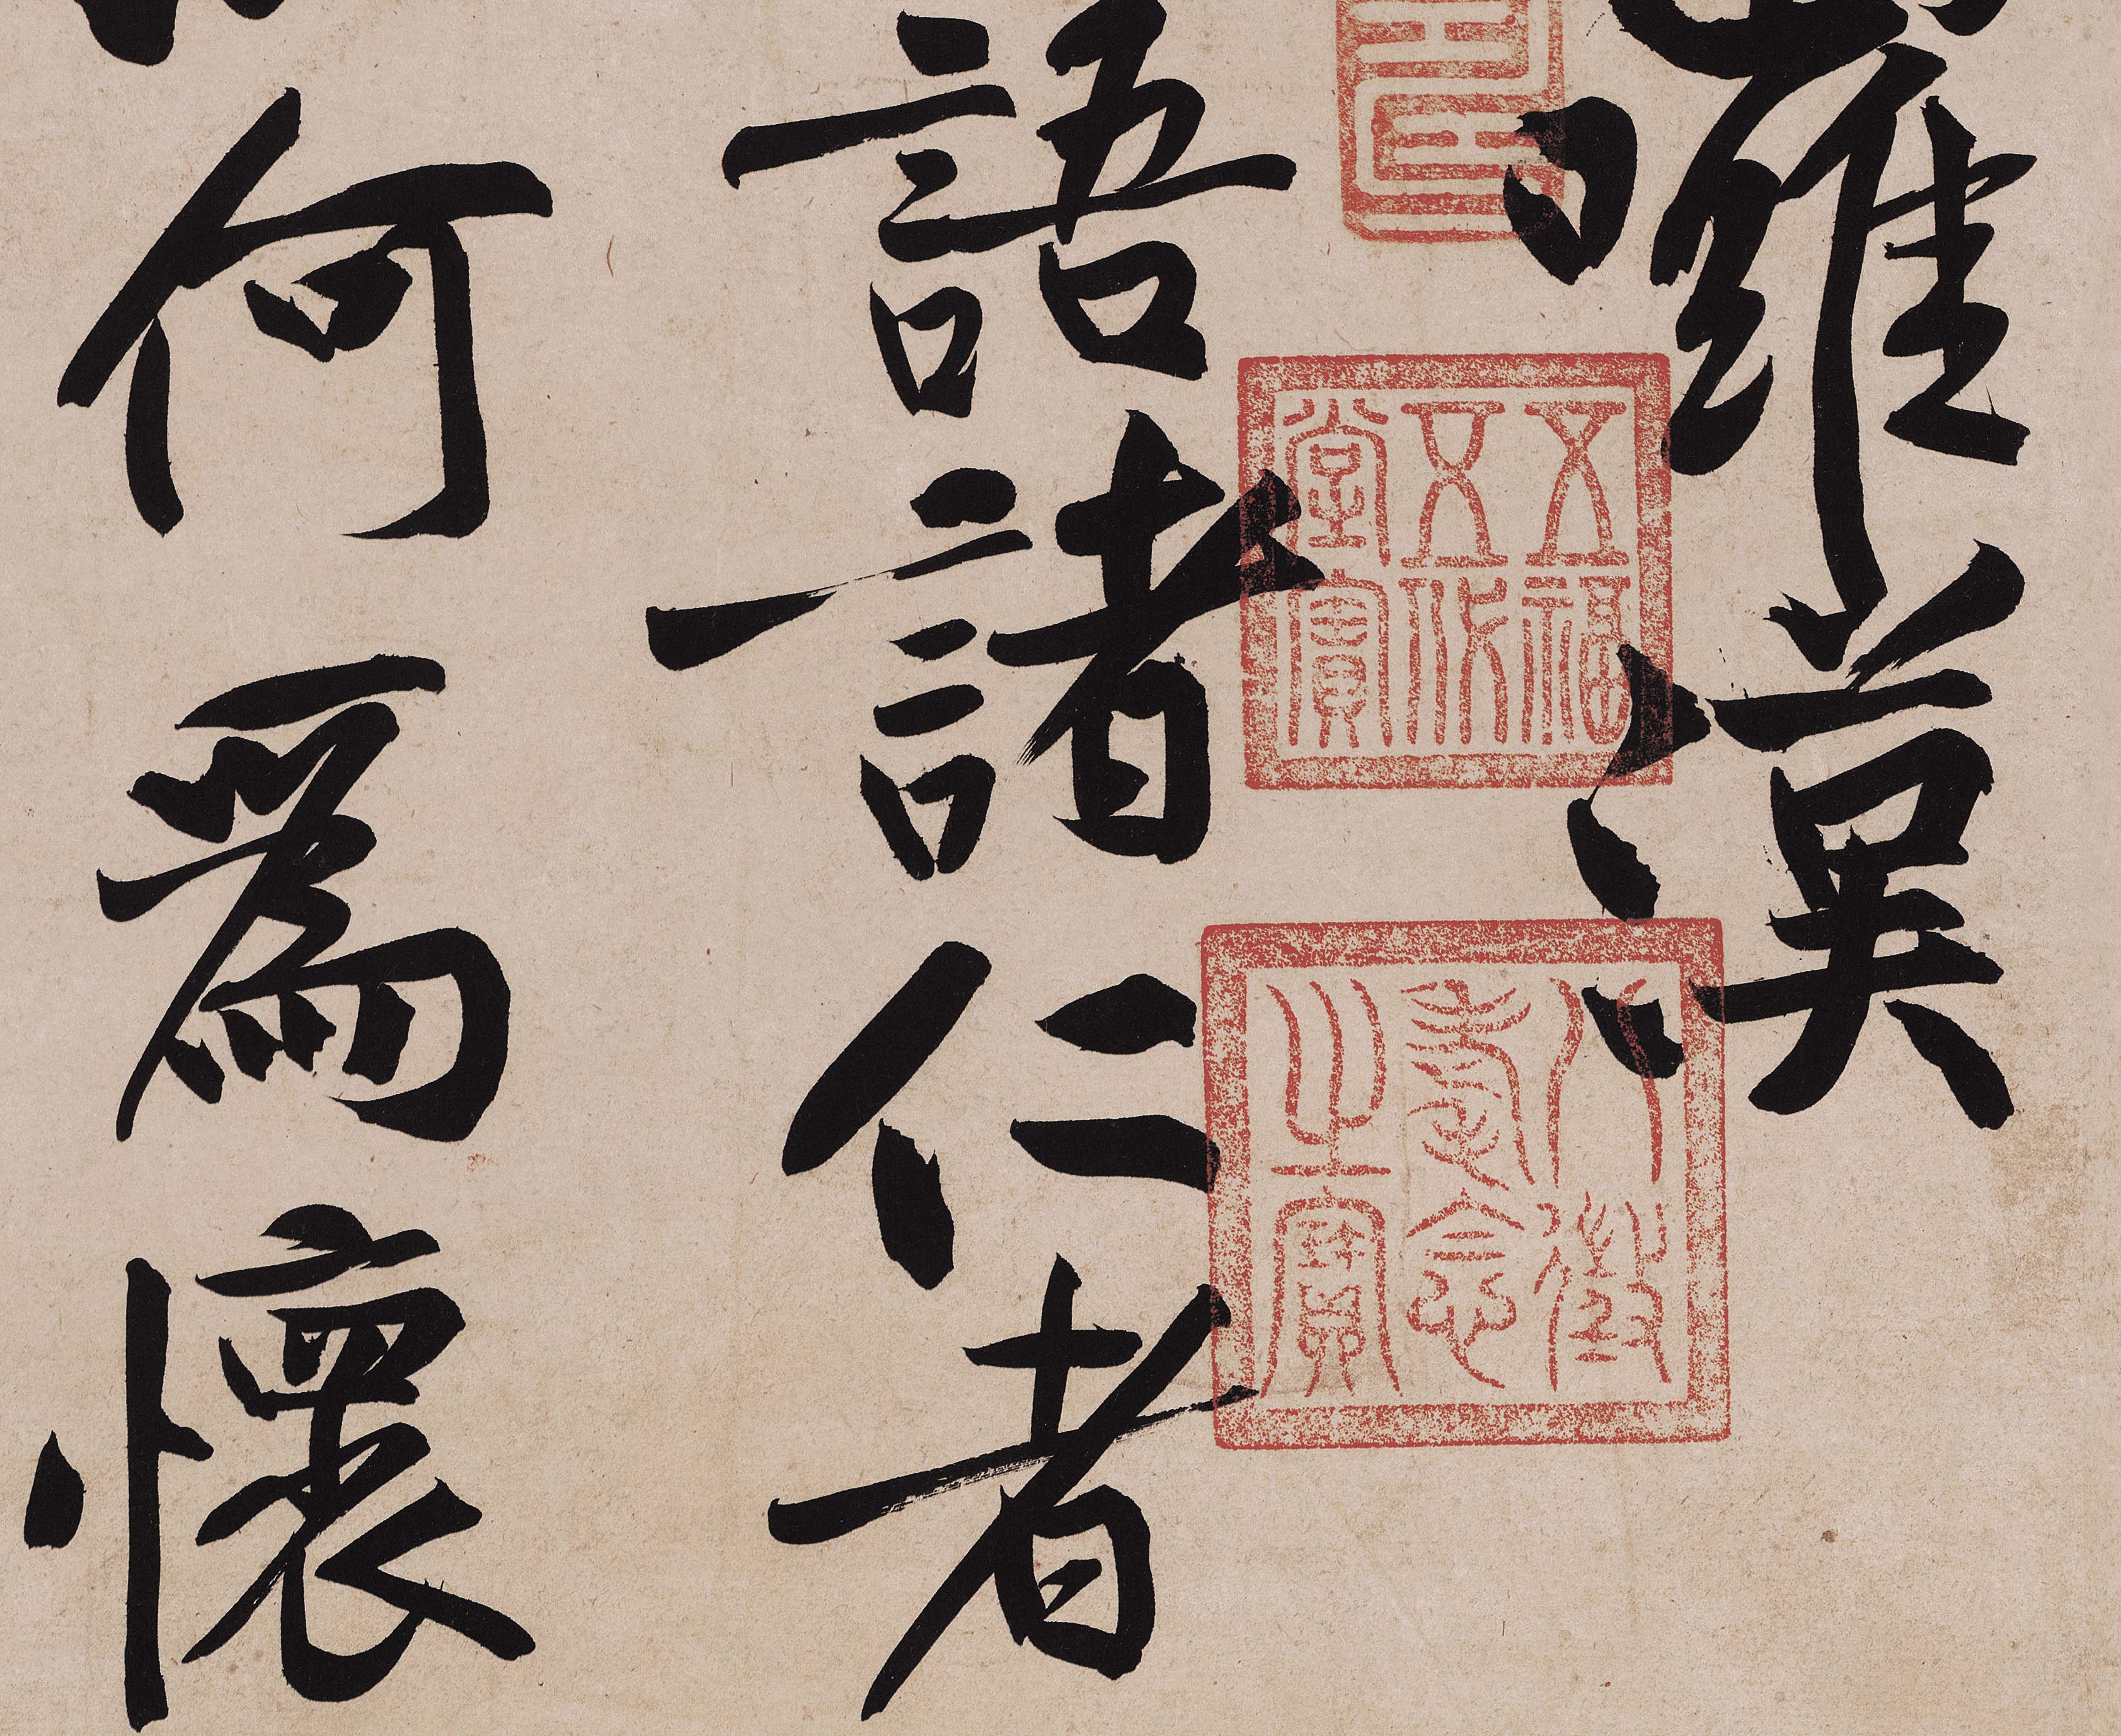 囉漢
語諸仁者
何為懷
五福
五代
堂寶
八徵
耄念
之寶